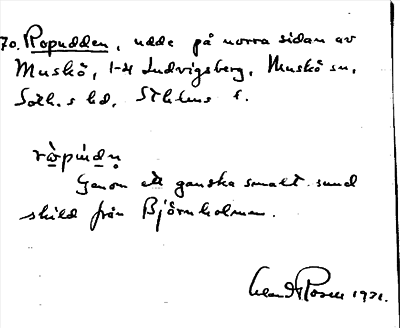 70. Ropudden, udde på norra sidan av
Muskö, 1-4 Ludvigsberg, Muskö sn,
Soth.s hd, Sthlms l.
Genom ett ganska smalt sund
skild från Björnholmen.
Rosen 1921.